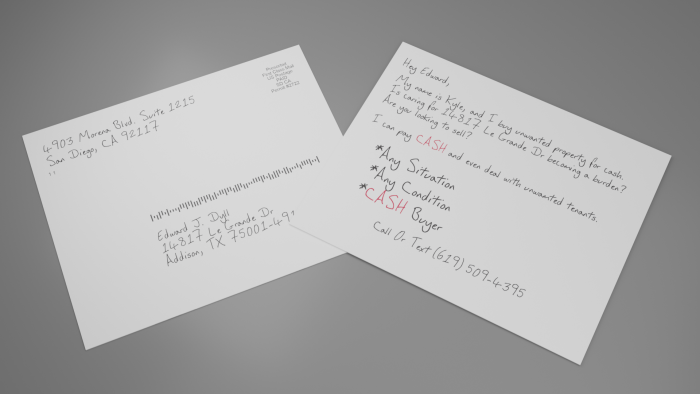 4903 Morena Blvd. Suite 1215
San Diego, CA 92117
Presorted
First Class Mail
US Postage
PAID
Edward J. Dyll
14817 Le Grande Dr
Addison, TX 75001-49
Hey Edward,
My name is Kyle, and I buy unwanted property for cash.
Is caring for 14817 Le Grande Dr becoming a burden?
Are you looking to sell?
I can pay CASH and even deal with unwanted tenants.
*Any Situation
*Any Condition
*CASH Buyer
Call Or Text (619) 509-4395